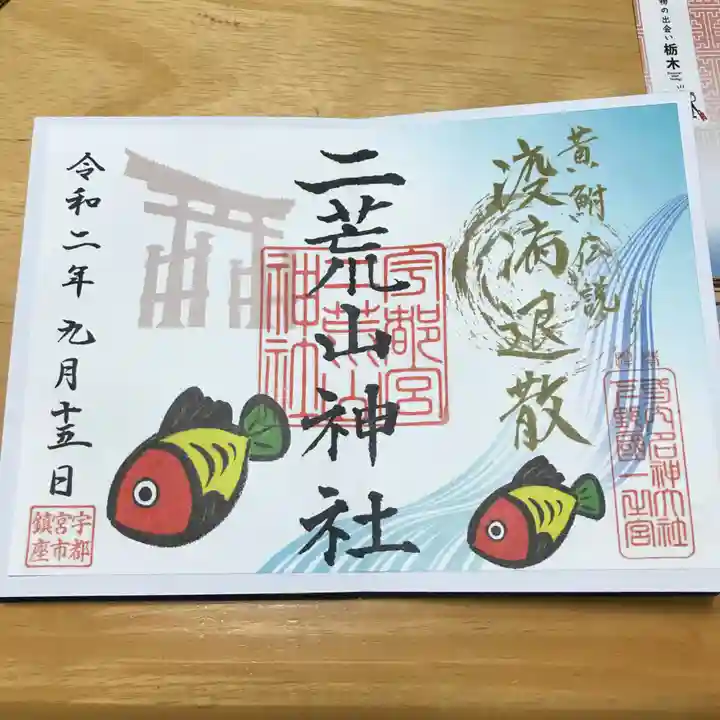 黄鮒伝説
疫病退散
二荒山神社
宇都宮
二荒山
神社
下野國一之宮
令和二年九月十五日
宇都
宮市
鎮座
の出会い 栃木三